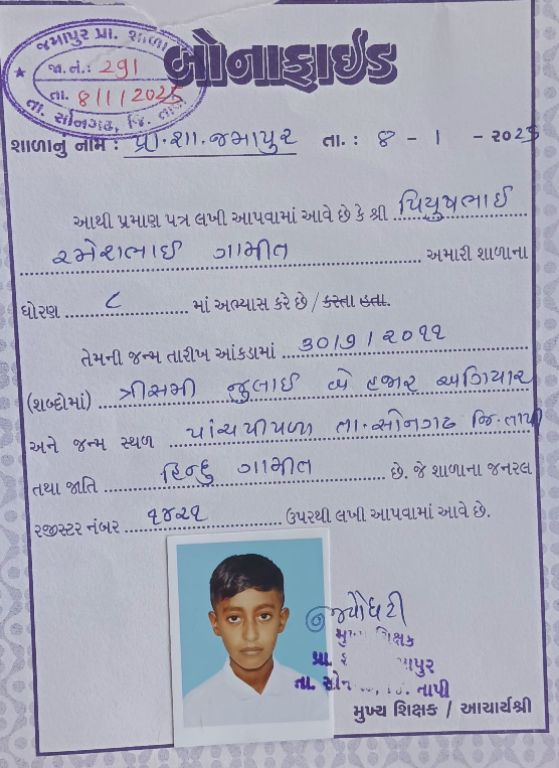 જમાપુર પ્રા. શાળા
જા.નં.: 291
તા. 8/1/2025
તા. સોનગઢ, જિ. તાપી
બોનાફાઈડ
શાળાનું નામ : પ્રા.શા.જમાપુર તા. : ૪ - ૧ - ૨૦૨૫
આથી પ્રમાણ પત્ર લખી આપવામાં આવે છે કે શ્રી પિયુષભાઈ
રમેશભાઈ ગામીત અમારી શાળાના
ધોરણ ૮ માં અભ્યાસ કરે છે / કરતા હતા.
તેમની જન્મ તારીખ આંકડામાં ૩૦/૭/૨૦૧૧
(શબ્દોમાં) ત્રીસમી જુલાઈ બે હજાર અગિયાર
અને જન્મ સ્થળ પાંચપીપળા તા.સોનગઢ જિ.તાપી
તથા જાતિ હિન્દુ ગામીત છે. જે શાળાના જનરલ
રજીસ્ટર નંબર ૧૪૨૧ ઉપરથી લખી આપવામાં આવે છે.
મુખ્ય શિક્ષક
પ્રા.
તા. જિ. તાપી
મુખ્ય શિક્ષક / આચાર્યશ્રી